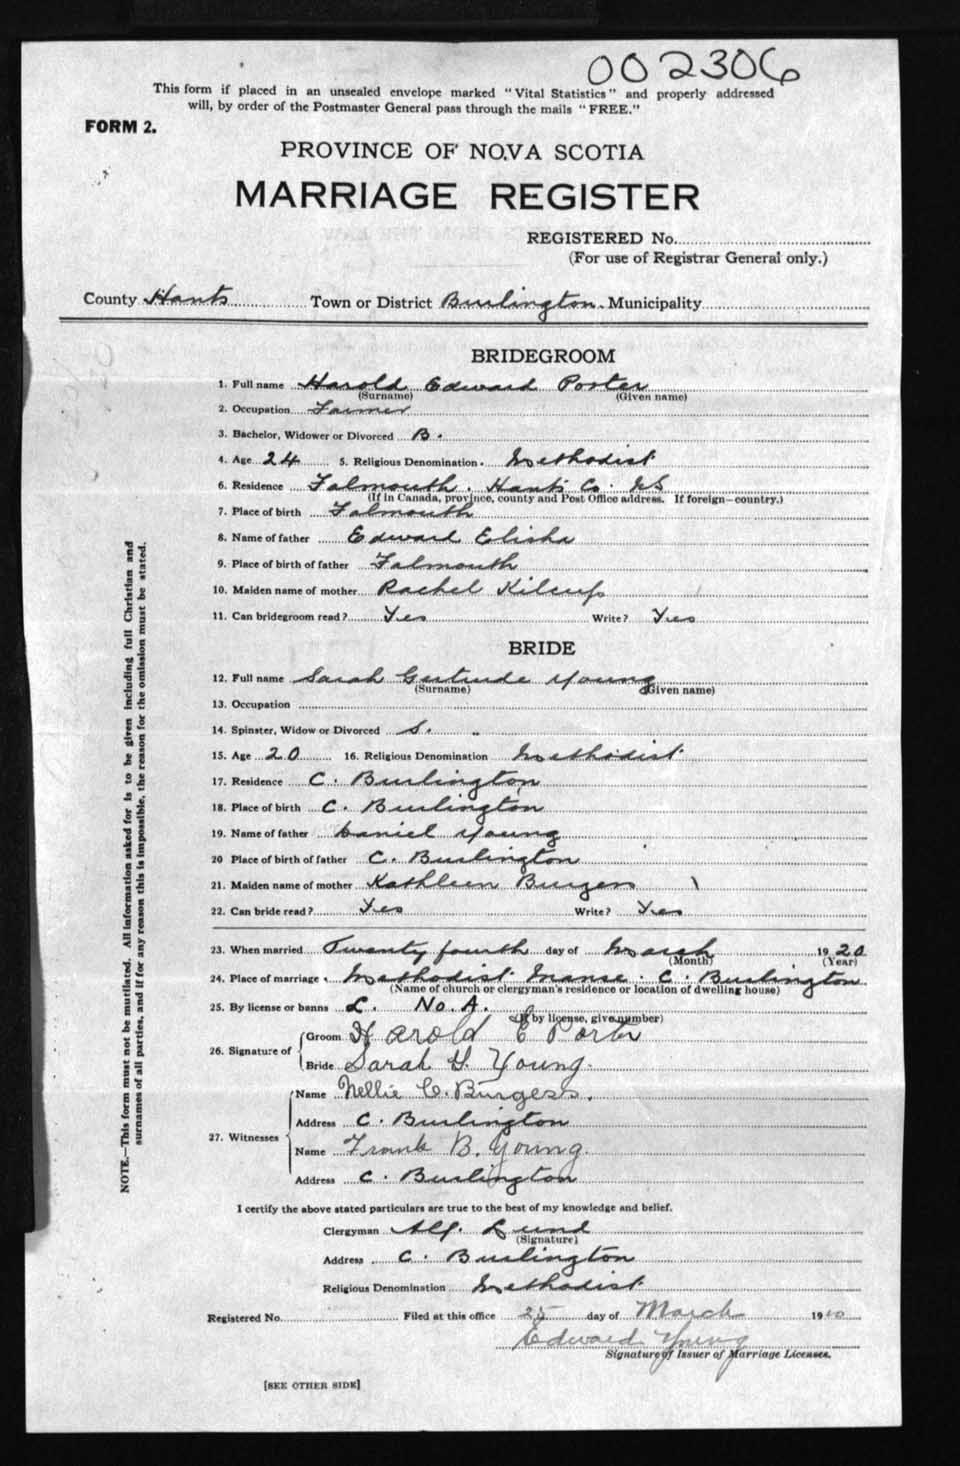 002306
This form if placed in an unsealed envelope marked "Vital Statistics" and properly addressed
will, by order of the Postmaster General pass through the mails "FREE."
FORM 2.
PROVINCE OF NOVA SCOTIA
MARRIAGE REGISTER
REGISTERED No.
(For use of Registrar General only.)
County Hants Town or District Burlington. Municipality
BRIDEGROOM
1. Full name Harold Edward Porter
(Surname) (Given name)
2. Occupation Farmer
3. Bachelor, Widower or Divorced B.
4. Age 24 5. Religious Denomination Methodist
6. Residence Falmouth. Hants Co. NS
(If in Canada, province, county and Post Office address. If foreign—country.)
7. Place of birth Falmouth
8. Name of father Edward Elisha
9. Place of birth of father Falmouth
10. Maiden name of mother Rachel Kilcup
11. Can bridegroom read? Yes Write? Yes
BRIDE
12. Full name Sarah Gertrude Young
(Surname) (Given name)
13. Occupation
14. Spinster, Widow or Divorced S.
15. Age 20 16. Religious Denomination Methodist
17. Residence C. Burlington
18. Place of birth C. Burlington
19. Name of father Daniel Young
20 Place of birth of father C. Burlington
21. Maiden name of mother Kathleen Burgess
22. Can bride read? Yes Write? Yes
23. When married Twenty fourth day of March 1920
(Month) (Year)
24. Place of marriage Methodist Manse. C. Burlington
(Name of church or clergyman's residence or location of dwelling house)
25. By license or banns L. No. A.
(If by license, give number)
26. Signature of Groom Harold E Porter
Bride Sarah G. Young.
27. Witnesses Name Nellie C. Burgess.
Address C. Burlington
Name Frank B. Young.
Address C. Burlington
I certify the above stated particulars are true to the best of my knowledge and belief.
Clergyman Alf. Lund
(Signature)
Address C. Burlington
Religious Denomination Methodist
Registered No. Filed at this office 25 day of March 19
Edward Young
Signature of Issuer of Marriage Licenses.
[SEE OTHER SIDE]
NOTE.—This form must not be mutilated. All information asked for is to be given including full Christian and
surnames of all parties, and if for any reason this is impossible, the reason for the omission must be stated.